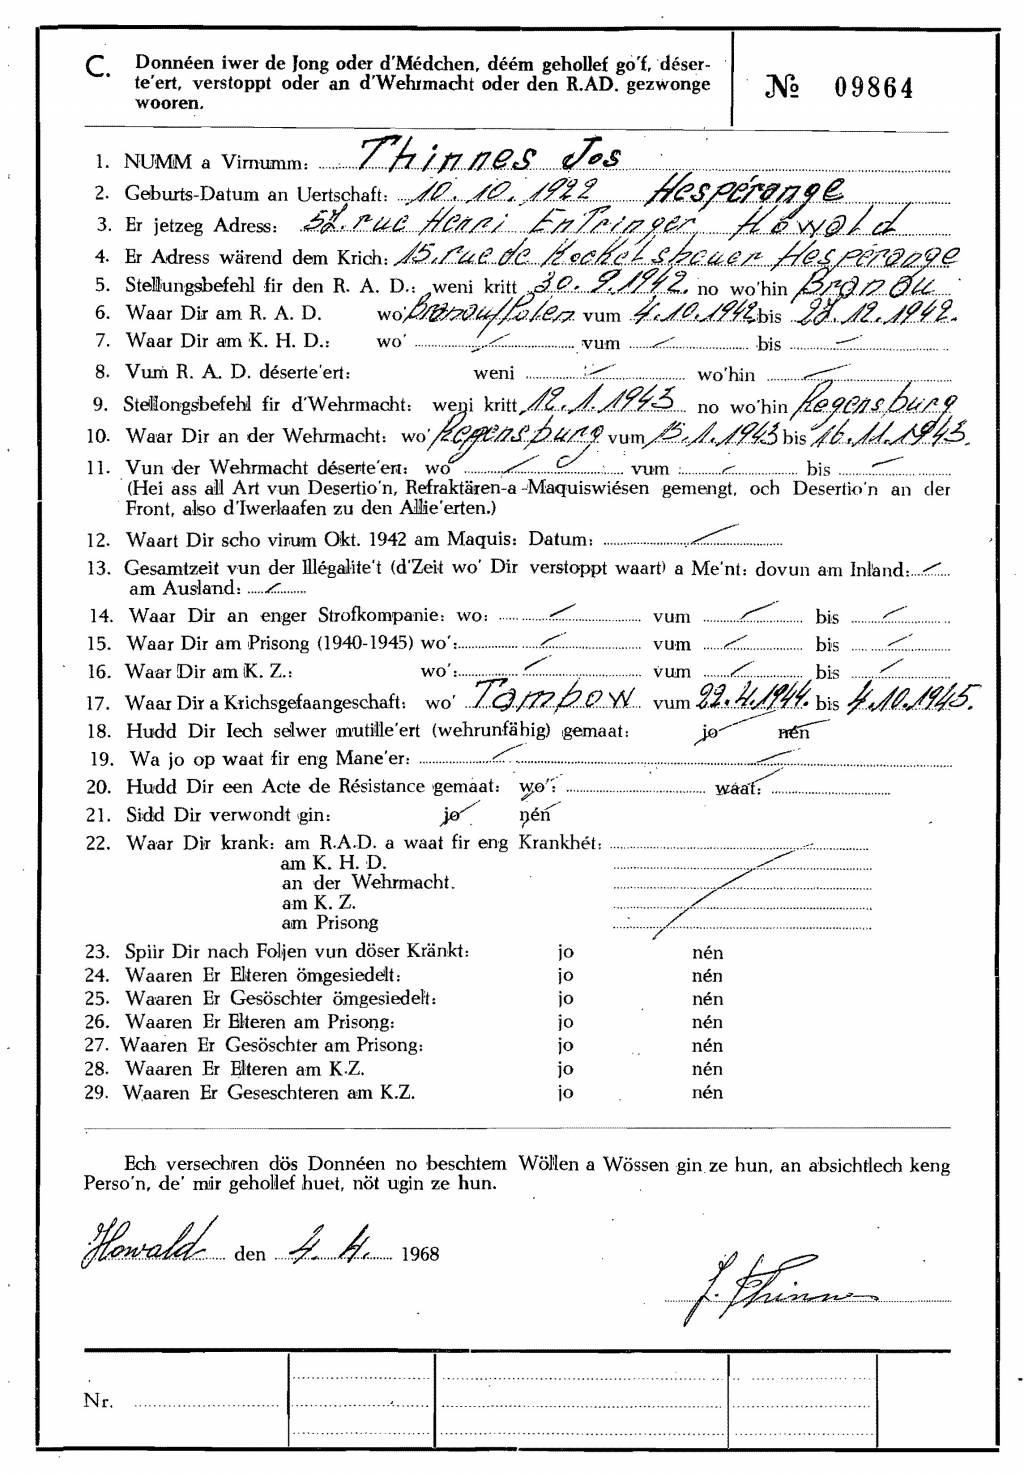 C. Donnéen iwer de Jong oder d'Médchen, déém gehollef go'f, déser-
te'ert, verstoppt oder an d'Wehrmacht oder den R.AD. gezwonge
wooren.
№ 09864
1. NUMM a Virnumm: Thinnes Jos
2. Geburts-Datum an Uertschaft: 10.10.1922 Hespérange
3. Er jetzeg Adress: 57. rue Henri Entringer Howald
4. Er Adress wärend dem Krich: 15. rue de Kockelsheuer Hespérange
5. Stellungsbefehl fir den R. A. D.: weni kritt 30. 9. 1942. no wo'hin Branau
6. Waar Dir am R. A. D. wo' Branau/Polen vum 4.10.1942 bis 27.12.1942.
7. Waar Dir am K. H. D.: wo' / vum / bis /
8. Vum R. A. D. déserte'ert: weni / wo'hin /
9. Stellongsbefehl fir d'Wehrmacht: weni kritt 12.1.1943 no wo'hin Regensburg
10. Waar Dir an der Wehrmacht: wo' Regensburg vum 15.1.1943 bis 16.11.1943.
11. Vun der Wehrmacht déserte'ert: wo / vum / bis /
(Hei ass all Art vun Desertio'n, Refraktären-a -Maquiswiésen gemengt, och Desertio'n an der
Front, also d'Iwerlaafen zu den Allie'erten.)
12. Waart Dir scho virum Okt. 1942 am Maquis: Datum: /
13. Gesamtzeit vun der Illégalite't (d'Zeit wo' Dir verstoppt waart) a Me'nt: dovun am Inland: /
am Ausland: /
14. Waar Dir an enger Strofkompanie: wo: / vum / bis /
15. Waar Dir am Prisong (1940-1945) wo': / vum / bis /
16. Waar Dir am K. Z.: wo': / vum / bis /
17. Waar Dir a Krichsgefaangeschaft: wo' Tambow vum 22.4.1944. bis 4.10.1945.
18. Hudd Dir Iech selwer mutille'ert (wehrunfähig) gemaat: jo nén
19. Wa jo op waat fir eng Mane'er: /
20. Hudd Dir een Acte de Résistance gemaat: wo': waat:
21. Sidd Dir verwondt gin: jo nén
22. Waar Dir krank: am R.A.D. a waat fir eng Krankhét:
am K. H. D.
an der Wehrmacht.
am K. Z.
am Prisong
23. Spiir Dir nach Foljen vun döser Kränkt: jo nén
24. Waaren Er Elteren ömgesiedelt: jo nén
25. Waaren Er Gesöschter ömgesiedelt: jo nén
26. Waaren Er Elteren am Prisong: jo nén
27. Waaren Er Gesöschter am Prisong: jo nén
28. Waaren Er Elteren am K.Z. jo nén
29. Waaren Er Geseschteren am K.Z. jo nén
Ech versechren dös Donnéen no beschtem Wöllen a Wössen gin ze hun, an absichtlech keng
Perso'n, de' mir gehollef huet, nöt ugin ze hun.
Howald den 4. 4. 1968
J. Thinnes
Nr.